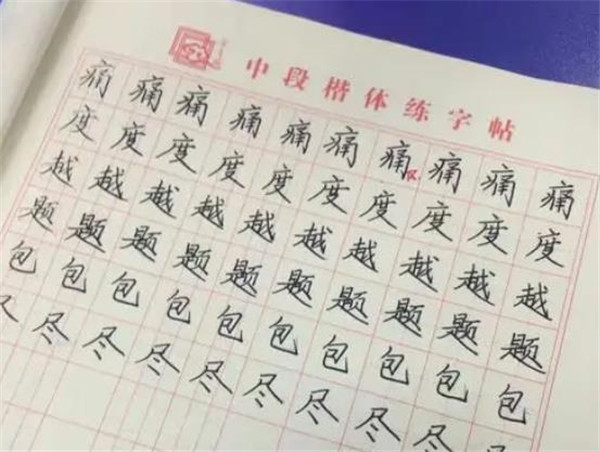 中段楷体练字帖
痛痛痛痛痛痛痛痛痛痛
度度度度度度度度度度
越越越越越越越越越越
题题题题题题题题题题
包包包包包包包包包包
尽尽尽尽尽尽尽尽尽